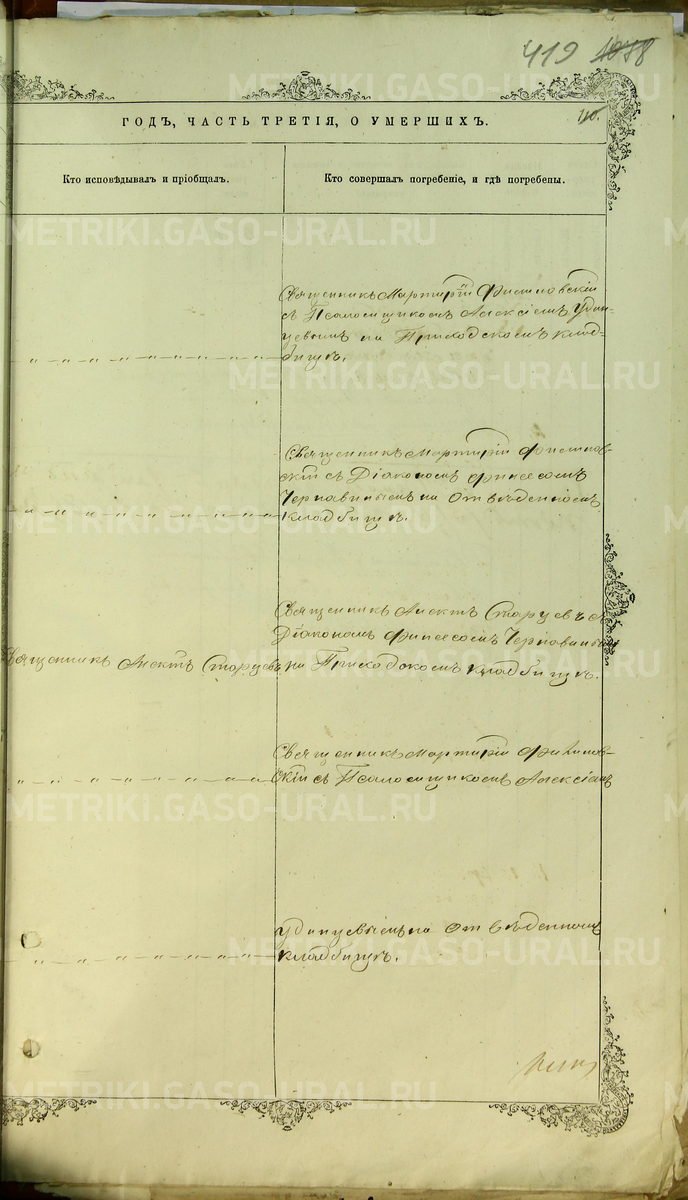 419 1088
ГОДЪ, ЧАСТЬ ТРЕТІЯ, О УМЕРШИХЪ.
Кто исповѣдывалъ и пріобщалъ.
Кто совершалъ погребеніе, и гдѣ погребены.
Священникъ Мартирій Филиповскій
съ Псаломщикомъ Алексіемъ Удин-
цевымъ на Приходскомъ клад-
бищѣ.
Священникъ Мартирій Филипов-
скій съ Діакономъ Финеесомъ
Чернавинымъ на Отвѣденномъ
кладбищѣ.
Священникъ Старцевъ съ
Діакономъ Финеесомъ Чернавинымъ
Священникъ Старцевъ
на Приходскомъ кладбищѣ.
Священникъ Мартирій Филипов-
скій съ Псаломщикомъ Алексіемъ
Удинцевымъ на Отвѣденномъ
кладбищѣ.
METRIKI.GASO-URAL.RU